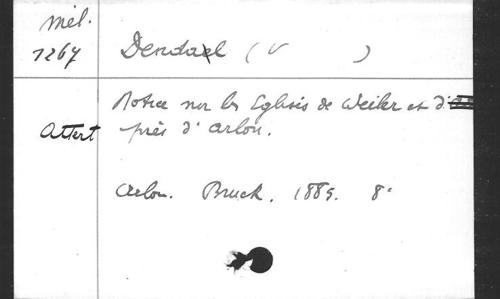 Mél.
7267
Dendael (V )
Notice sur les Eglises de Weiler et d'
Attert
près d'Arlon.
Arlon. Bruck. 1885. 8°